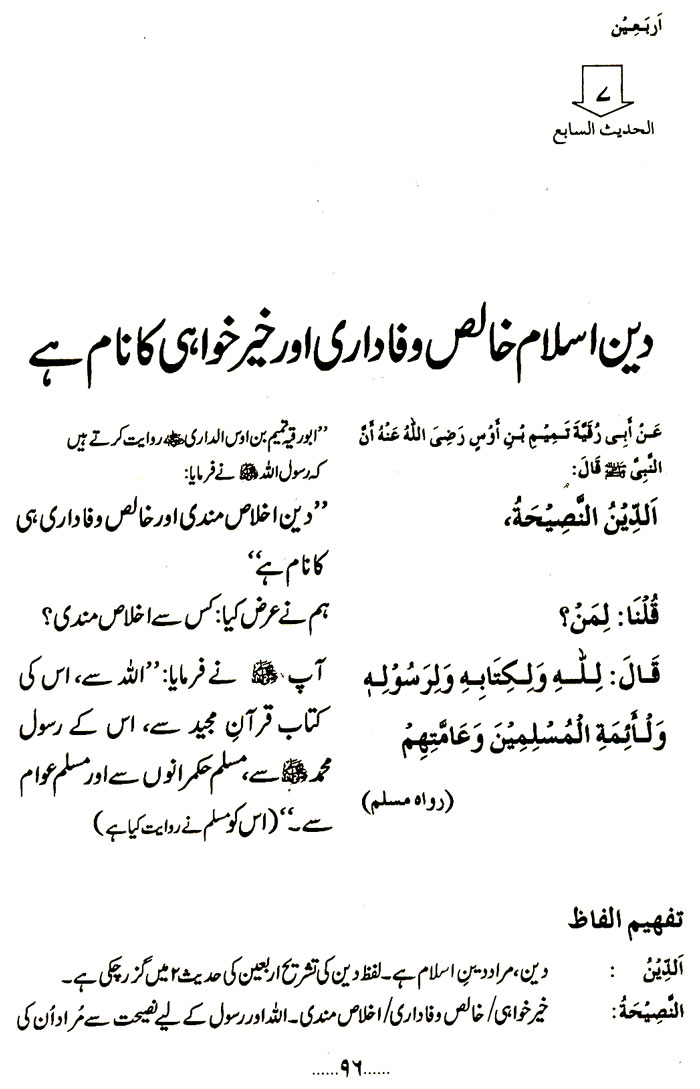 اَربَعِیْن
۷
الحدیث السابع
دین اسلام خالص وفاداری اور خیر خواہی کا نام ہے
عَنْ أَبِی رُقَیَّةَ تَمِیْمِ بْنِ أَوْسٍ رَضِیَ اللّٰهُ عَنْهُ أَنَّ
النَّبِیَّ ﷺ قَالَ:
اَلدِّیْنُ النَّصِیْحَةُ،
قُلْنَا: لِمَنْ؟
قَالَ: لِلّٰهِ وَلِکِتَابِهِ وَلِرَسُوْلِهِ
وَلْأَئِمَةِ الْمُسْلِمِیْنَ وَعَامَّتِهِمْ
(رواہ مسلم)
”ابورقیہ تمیم بن اوس الداری ؓ روایت کرتے ہیں
کہ رسول اللہ ﷺ نے فرمایا:
”دین اخلاص مندی اور خالص وفاداری ہی
کا نام ہے“
ہم نے عرض کیا: کس سے اخلاص مندی؟
آپ ﷺ نے فرمایا: ”اللہ سے، اس کی
کتاب قرآنِ مجید سے، اس کے رسول
محمد ﷺ سے، مسلم حکمرانوں سے اور مسلم عوام
سے۔“ (اس کو مسلم نے روایت کیا ہے)
تفهیم الفاظ
اَلدِّیْنُ : دین، مراد دینِ اسلام ہے۔ لفظ دین کی تشریح اربعین کی حدیث ۲ میں گزر چکی ہے۔
النَّصِیْحَةُ: خیر خواہی/ خالص وفاداری/ اخلاص مندی۔ اللہ اور رسول کے لیے نصیحت سے مُراد اُن کی
......۹۶......